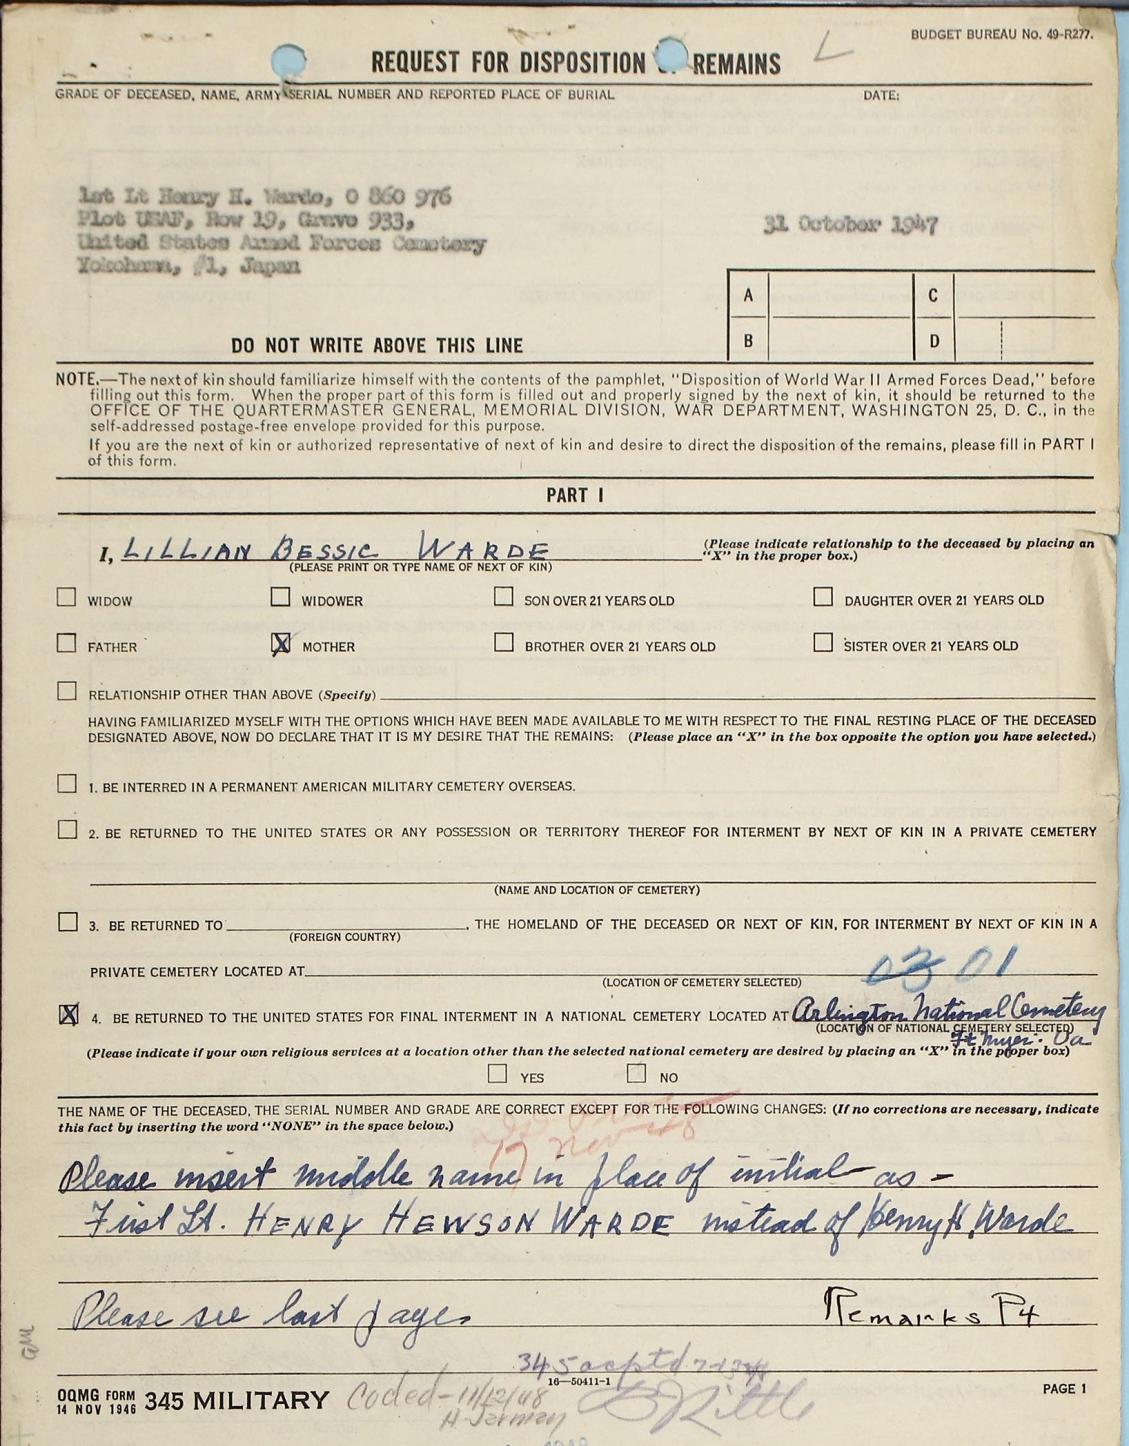 BUDGET BUREAU No. 49-R277.
REQUEST FOR DISPOSITION REMAINS
GRADE OF DECEASED, NAME, ARMY SERIAL NUMBER AND REPORTED PLACE OF BURIAL
DATE:
1st Lt Henry H. Warde, O 860 976
Plot USAF, Row 19, Grave 933,
United States Armed Forces Cemetery
Yokohama, #1, Japan
31 October 1947
A
C
B
D
DO NOT WRITE ABOVE THIS LINE
NOTE.—The next of kin should familiarize himself with the contents of the pamphlet, "Disposition of World War II Armed Forces Dead," before
filling out this form. When the proper part of this form is filled out and properly signed by the next of kin, it should be returned to the
OFFICE OF THE QUARTERMASTER GENERAL, MEMORIAL DIVISION, WAR DEPARTMENT, WASHINGTON 25, D. C., in the
self-addressed postage-free envelope provided for this purpose.
If you are the next of kin or authorized representative of next of kin and desire to direct the disposition of the remains, please fill in PART I
of this form.
PART I
I, LILLIAN BESSIE WARDE
(Please indicate relationship to the deceased by placing an
"X" in the proper box.)
(PLEASE PRINT OR TYPE NAME OF NEXT OF KIN)
WIDOW
WIDOWER
SON OVER 21 YEARS OLD
DAUGHTER OVER 21 YEARS OLD
FATHER
X MOTHER
BROTHER OVER 21 YEARS OLD
SISTER OVER 21 YEARS OLD
RELATIONSHIP OTHER THAN ABOVE (Specify)
HAVING FAMILIARIZED MYSELF WITH THE OPTIONS WHICH HAVE BEEN MADE AVAILABLE TO ME WITH RESPECT TO THE FINAL RESTING PLACE OF THE DECEASED
DESIGNATED ABOVE, NOW DO DECLARE THAT IT IS MY DESIRE THAT THE REMAINS: (Please place an "X" in the box opposite the option you have selected.)
1. BE INTERRED IN A PERMANENT AMERICAN MILITARY CEMETERY OVERSEAS.
2. BE RETURNED TO THE UNITED STATES OR ANY POSSESSION OR TERRITORY THEREOF FOR INTERMENT BY NEXT OF KIN IN A PRIVATE CEMETERY
(NAME AND LOCATION OF CEMETERY)
3. BE RETURNED TO , THE HOMELAND OF THE DECEASED OR NEXT OF KIN, FOR INTERMENT BY NEXT OF KIN IN A
(FOREIGN COUNTRY)
03 01
PRIVATE CEMETERY LOCATED AT
(LOCATION OF CEMETERY SELECTED)
X 4. BE RETURNED TO THE UNITED STATES FOR FINAL INTERMENT IN A NATIONAL CEMETERY LOCATED AT Arlington National Cemetery
(LOCATION OF NATIONAL CEMETERY SELECTED)
Ft Myer. Va
(Please indicate if your own religious services at a location other than the selected national cemetery are desired by placing an "X" in the proper box)
YES
NO
THE NAME OF THE DECEASED, THE SERIAL NUMBER AND GRADE ARE CORRECT EXCEPT FOR THE FOLLOWING CHANGES: (If no corrections are necessary, indicate
this fact by inserting the word "NONE" in the space below.)
17 Nov 48
Please insert middle name in place of initial as -
First Lt. HENRY HEWSON WARDE instead of Henry H. Warde
Please see last page.
Remarks P4
345 acptd
16—50411-1
OQMG FORM
14 NOV 1946 345 MILITARY
Coded - 11/12/48
H. Jarman
PAGE 1
GM